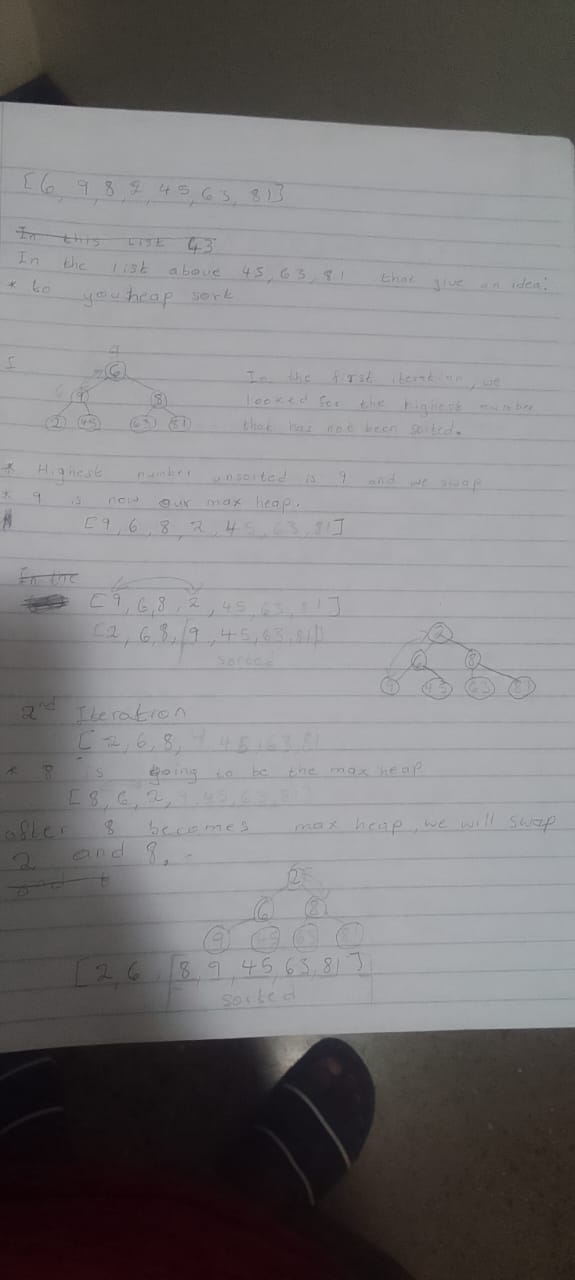 [6, 9, 8, 2, 45, 63, 81]
In this list 43
In the list above 45, 63, 81 that give an idea:
* to you heap sort
1
9
6
9 8
2 45 63 81
In the first iteration, we
looked for the highest number
that has not been sorted.
* Highest number unsorted is 9 and we swap
* 9 is now our max heap.
[9, 6, 8, 2, 45, 63, 81]
In the
[9, 6, 8, 2, 45, 63, 81]
[2, 6, 8, 9, 45, 63, 81]
sorted
2
6 8
9 45 63 81
2nd Iteration
[2, 6, 8, 9 45, 63, 81
* 8 is going to be the max heap
[8, 6, 2, 9, 45, 63, 81]
after 8 becomes max heap, we will swap
2 and 8.
2
6 8
9 45 63 81
[2, 6, 8, 9, 45, 63, 81]
sorted